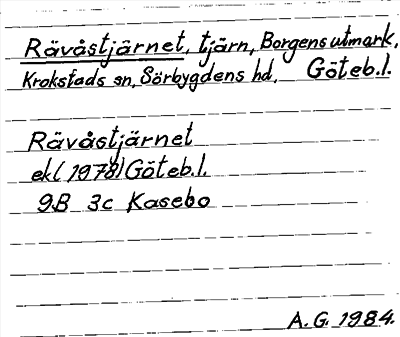 Rävåstjärnet, tjärn, Borgens utmark,
Krokstads sn, Sörbygdens hd, Göteb.l.
Rävåstjärnet
ek(1978) Göteb.l.
9B 3c Kasebo
A.G. 1984.